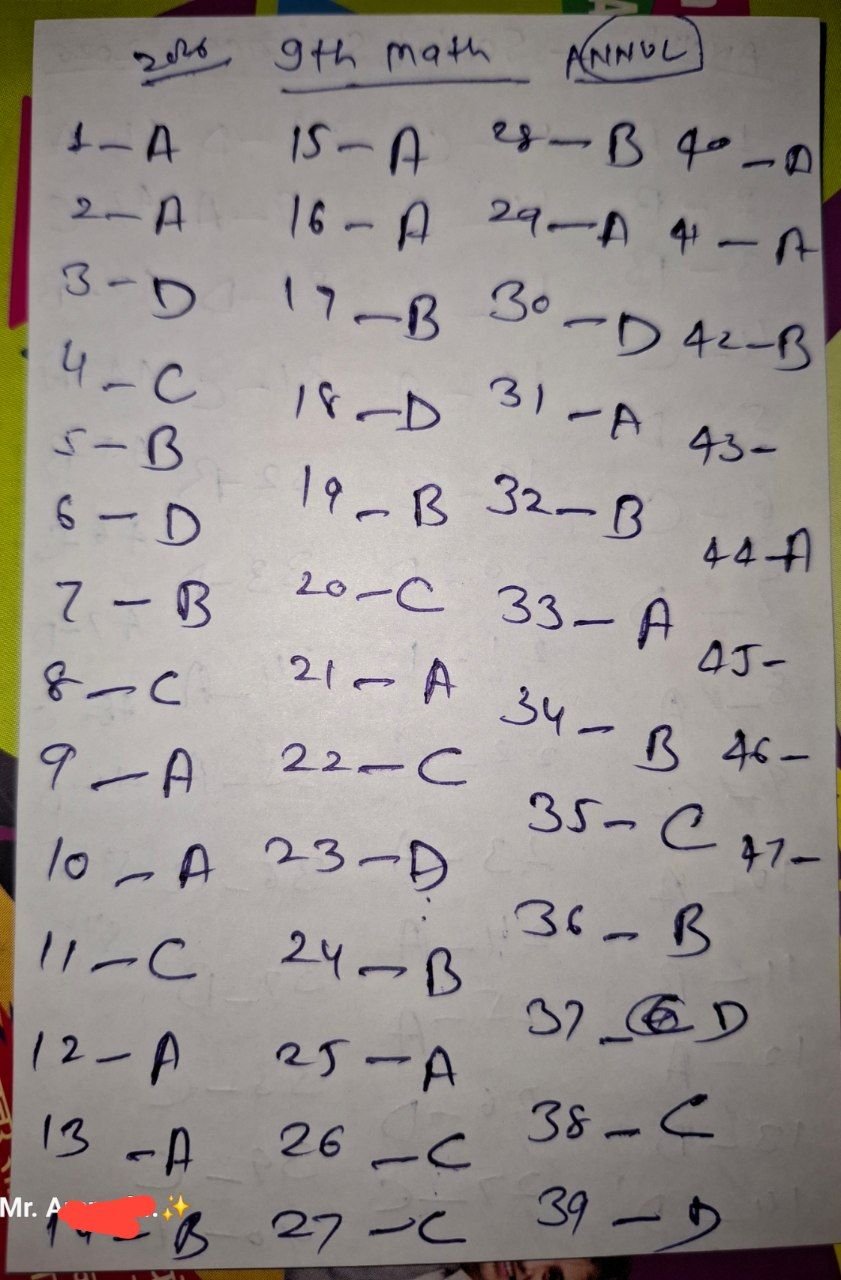 2026 9th math ANNUL
1-A
2-A
3-D
4-C
5-B
6-D
7-B
8-C
9-A
10-A
11-C
12-A
13-A
14-B
15-A
16-A
17-B
18-D
19-B
20-C
21-A
22-C
23-D
24-B
25-A
26-C
27-C
28-B
29-A
30-D
31-A
32-B
33-A
34-B
35-C
36-B
37-D
38-C
39-D
40-A
41-A
42-B
43-
44-A
45-
46-
47-
Mr. A